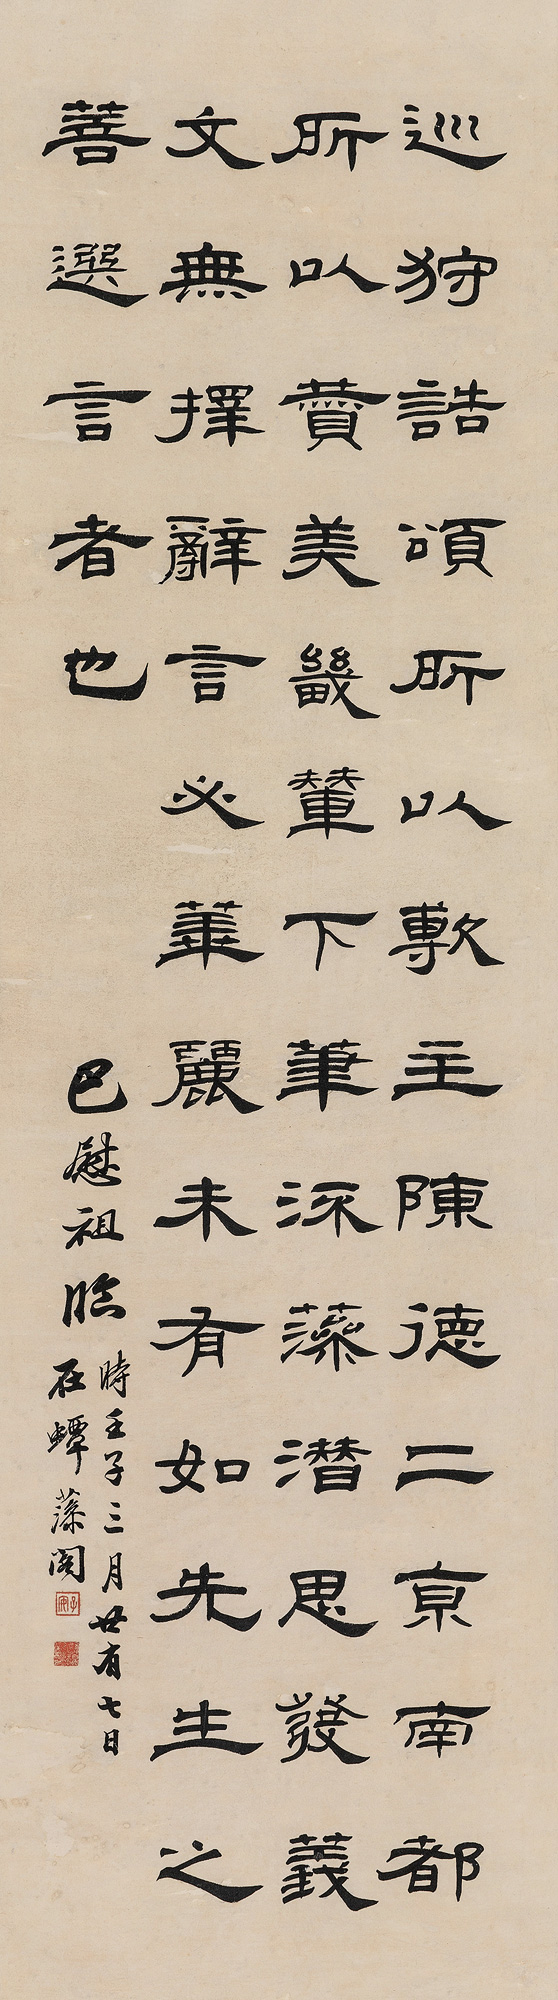 巡狩誥頌所以敷主陳德二京南都
所以贊美畿輦下筆流藻潛思發義
文無擇辭言必華麗未有如先生之
善選言者也
巴慰祖臨
時壬子三月廿有七日
在蟫藻閣